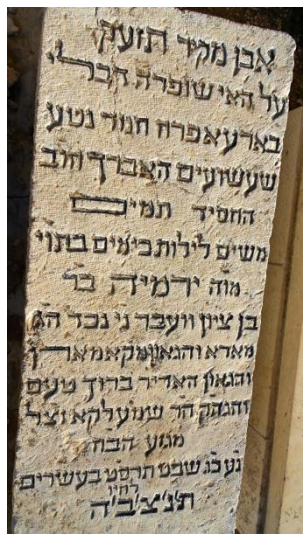 אבן מקיר תזעק
על האי שופרה דבלי
בארעא פרח חמד נטע
שעשועים האברך חוב
החסיד תמים
משים לילות כימים בתוי
מוה ירמיה בר
בן ציון וועבר ני נכד הג
מארא והגאון מקאמארן
והגאון האדיר ברוך טעם
והגהק הר שמעלקא וצל
מגזע הבח
נע כג שבט תרסט בעשרים
לחייו
ת'נ'צ'ב'ה